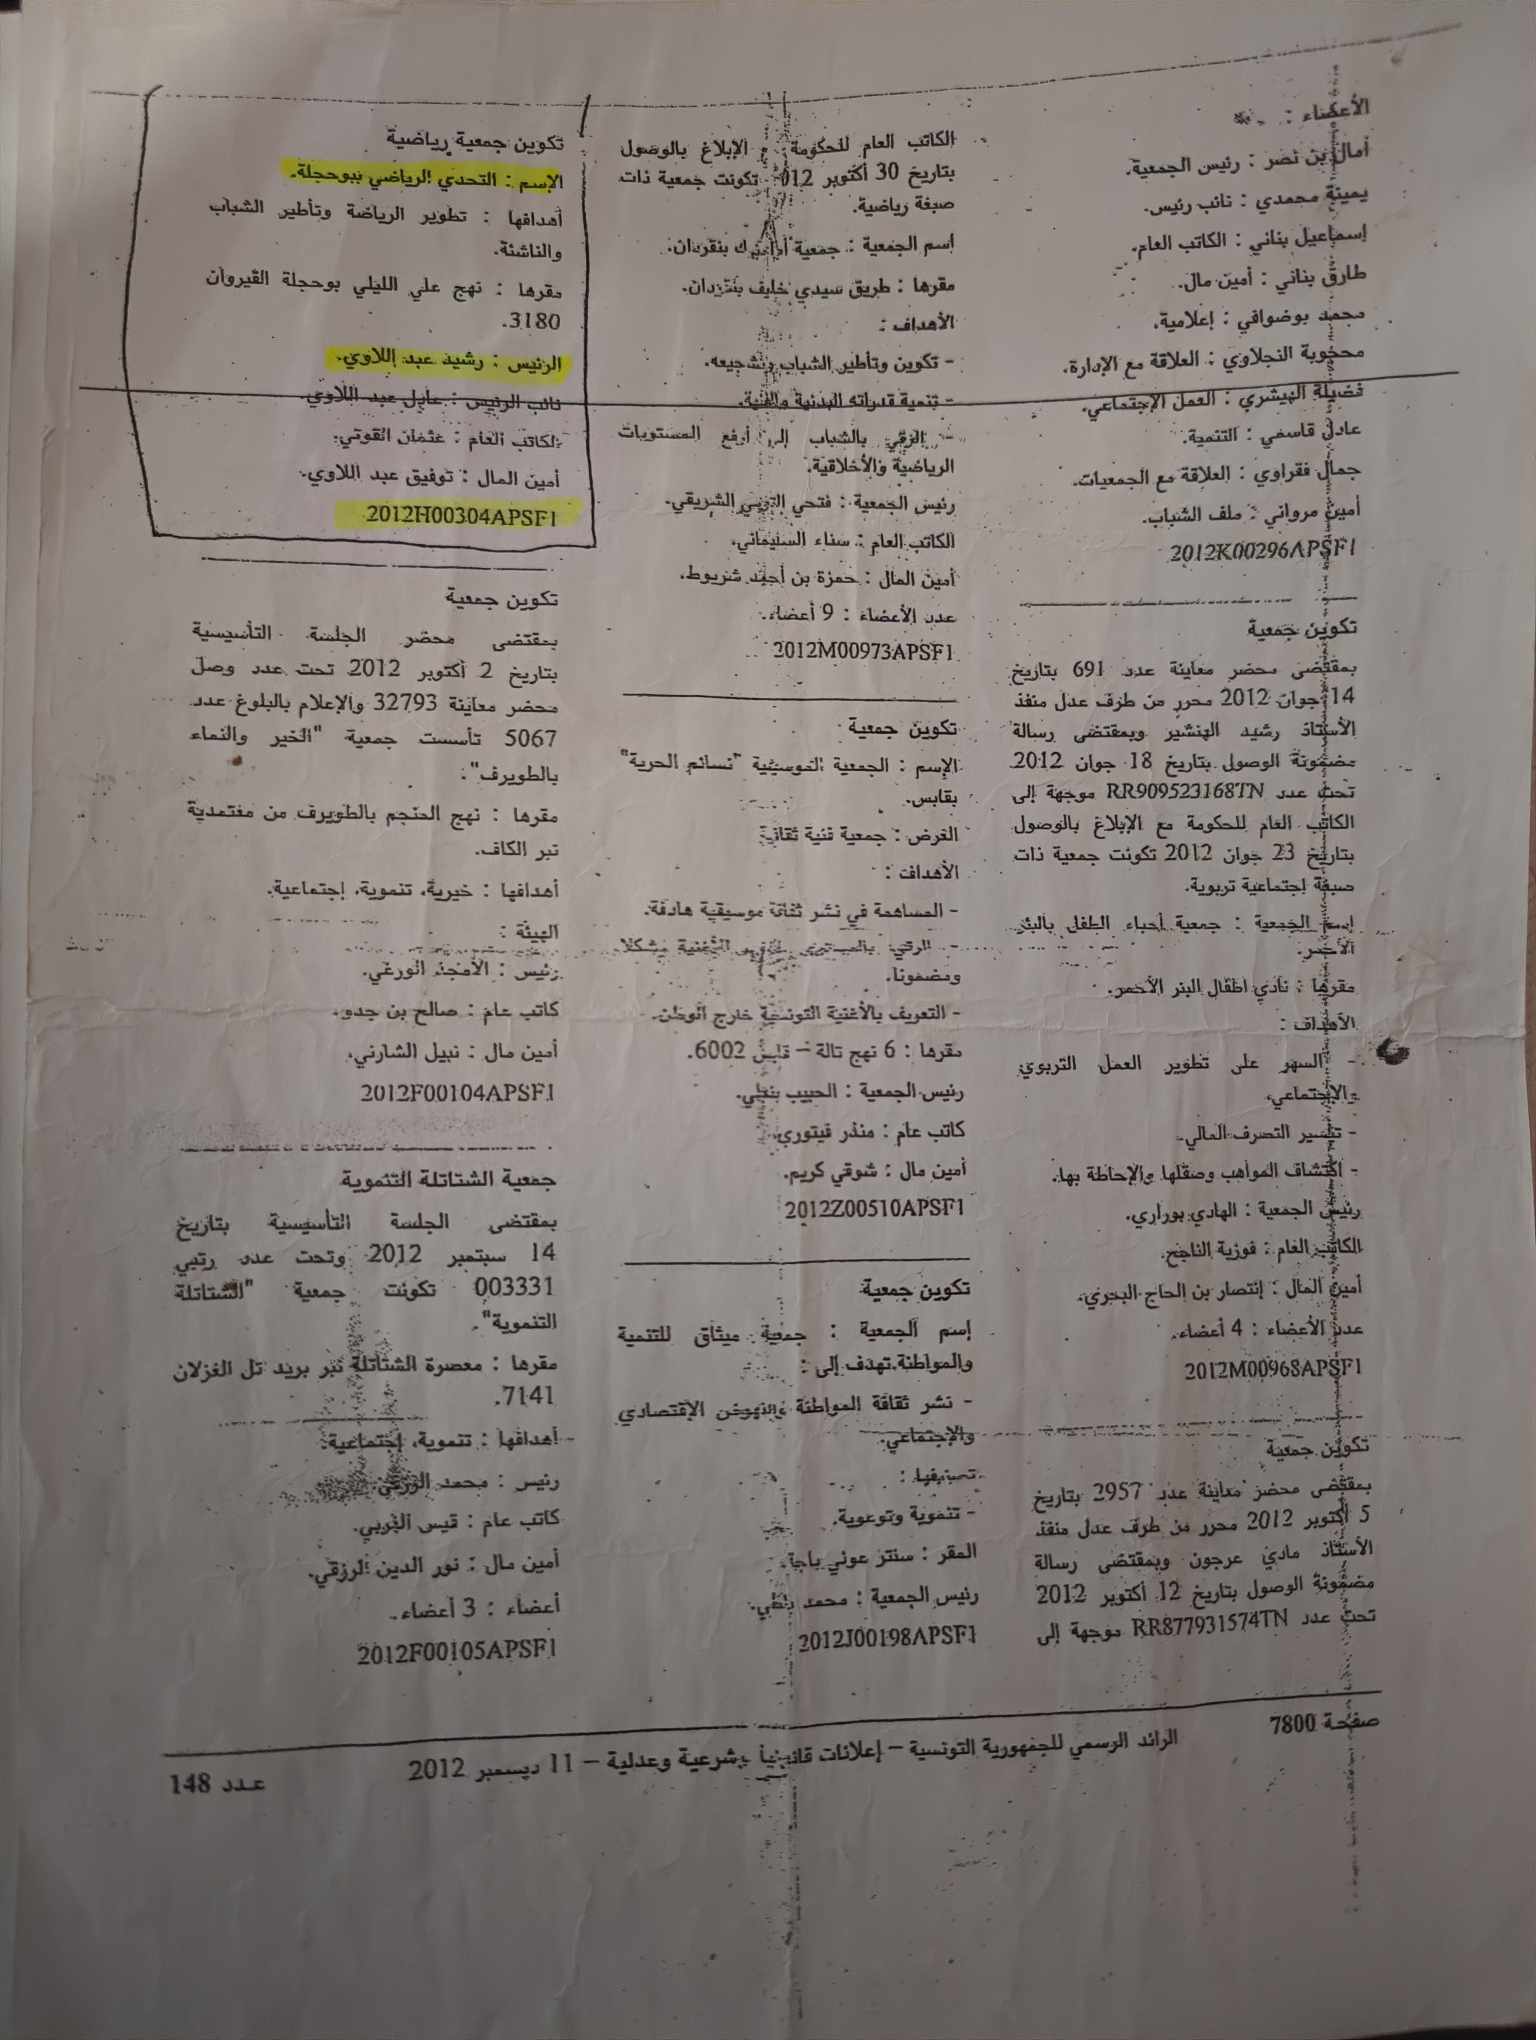 الأعضاء :
أمال بن نصر : رئيس الجمعية.
يمينة محمدي : نائب رئيس.
إسماعيل بناني : الكاتب العام.
طارق بناني : أمين مال.
محمد بوضوافي : إعلامية.
محجوبة النجلاوي : العلاقة مع الإدارة.
فضيلة الهيشري : العمل الإجتماعي.
عادل قاسمي : التنمية.
جمال فقراوي : العلاقة مع الجمعيات.
أمين مرواني : ملف الشباب.
2012K00296APSF1
تكوين جمعية
بمقتضى محضر معاينة عدد 691 بتاريخ
14 جوان 2012 محرر من طرف عدل منفذ
الأستاذ رشيد الهنشير وبمقتضى رسالة
مضمونة الوصول بتاريخ 18 جوان 2012
تحت عدد RR909523168TN موجهة إلى
الكاتب العام للحكومة مع الإبلاغ بالوصول
بتاريخ 23 جوان 2012 تكونت جمعية ذات
صبغة إجتماعية تربوية.
إسم الجمعية : جمعية أحباء الطفل بالبئر
الأحمر.
مقرها : نادي أطفال البئر الأحمر.
الأهداف :
- السهر على تطوير العمل التربوي
والإجتماعي.
- تيسير التصرف المالي.
- اكتشاف المواهب وصقلها والإحاطة بها.
رئيس الجمعية : الهادي بوراري.
الكاتب العام : فوزية الناجح.
أمين المال : إنتصار بن الحاج البحري.
عدد الأعضاء : 4 أعضاء.
2012M00968APSF1
تكوين جمعية
بمقتضى محضر معاينة عدد 2957 بتاريخ
5 أكتوبر 2012 محرر من طرف عدل منفذ
الأستاذ مادي عرجون وبمقتضى رسالة
مضمونة الوصول بتاريخ 12 أكتوبر 2012
تحت عدد RR877931574TN موجهة إلى
الكاتب العام للحكومة مع الإبلاغ بالوصول
بتاريخ 30 أكتوبر 2012 تكونت جمعية ذات
صبغة رياضية.
اسم الجمعية : جمعية بنقردان.
مقرها : طريق سيدي خليف بنقردان.
الأهداف :
- تكوين وتأطير الشباب وتشجيعه.
- تنمية قدراته البدنية والفنية.
- الرقي بالشباب إلى أرفع المستويات
الرياضية والأخلاقية.
رئيس الجمعية : فتحي الشريقي.
الكاتب العام : سناء السليماني.
أمين المال : حمزة بن أحمد شربوط.
عدد الأعضاء : 9 أعضاء.
2012M00973APSF1
تكوين جمعية
الإسم : الجمعية الموسيقية "نسائم الحرية"
بقابس.
الغرض : جمعية فنية ثقافية
الأهداف :
- المساهمة في نشر ثقافة موسيقية هادفة.
- الرقي بالمستوى الأغنية شكلا
ومضمونا.
- التعريف بالأغنية التونسية خارج الوطن.
مقرها : 6 نهج تالة – قابس 6002.
رئيس الجمعية : الحبيب
كاتب عام : منذر فيتوري.
أمين مال : شوقي كريم.
2012Z00510APSF1
تكوين جمعية
إسم الجمعية : جمعية ميثاق للتنمية
والمواطنة تهدف إلى :
- نشر ثقافة المواطنة والنهوض الإقتصادي
والإجتماعي.
تصنيفها :
- تنموية وتوعوية.
المقر : سنتر عوني باجة.
رئيس الجمعية : محمد
2012J00198APSF1
تكوين جمعية رياضية
الإسم : التحدي الرياضي ببوحجلة.
أهدافها : تطوير الرياضة وتأطير الشباب
والناشئة.
مقرها : نهج علي الليلي بوحجلة القيروان
3180.
الرئيس : رشيد عبد اللاوي.
نائب الرئيس : عادل عبد اللاوي.
الكاتب العام : عثمان القوتي.
أمين المال : توفيق عبد اللاوي.
2012H00304APSF1
تكوين جمعية
بمقتضى محضر الجلسة التأسيسية
بتاريخ 2 أكتوبر 2012 تحت عدد وصل
محضر معاينة 32793 والإعلام بالبلوغ عدد
5067 تأسست جمعية "الخير والنماء
بالطويرف".
مقرها : نهج المنجم بالطويرف من معتمدية
نبر الكاف.
أهدافها : خيرية، تنموية، إجتماعية.
الهيئة :
رئيس : الأمجد الورغي.
كاتب عام : صالح بن جدو.
أمين مال : نبيل الشارني.
2012F00104APSF1
جمعية الشتاتلة التنموية
بمقتضى الجلسة التأسيسية بتاريخ
14 سبتمبر 2012 وتحت عدد رتبي
003331 تكونت جمعية "الشتاتلة
التنموية".
مقرها : معصرة الشتاتلة نبر بريد تل الغزلان
7141.
أهدافها : تنموية، إجتماعية.
رئيس : محمد الزرعي.
كاتب عام : قيس الغربي.
أمين مال : نور الدين الرزقي.
أعضاء : 3 أعضاء.
2012F00105APSF1
صفحة 7800 الرائد الرسمي للجمهورية التونسية – إعلانات قانونية وشرعية وعدلية – 11 ديسمبر 2012 عدد 148